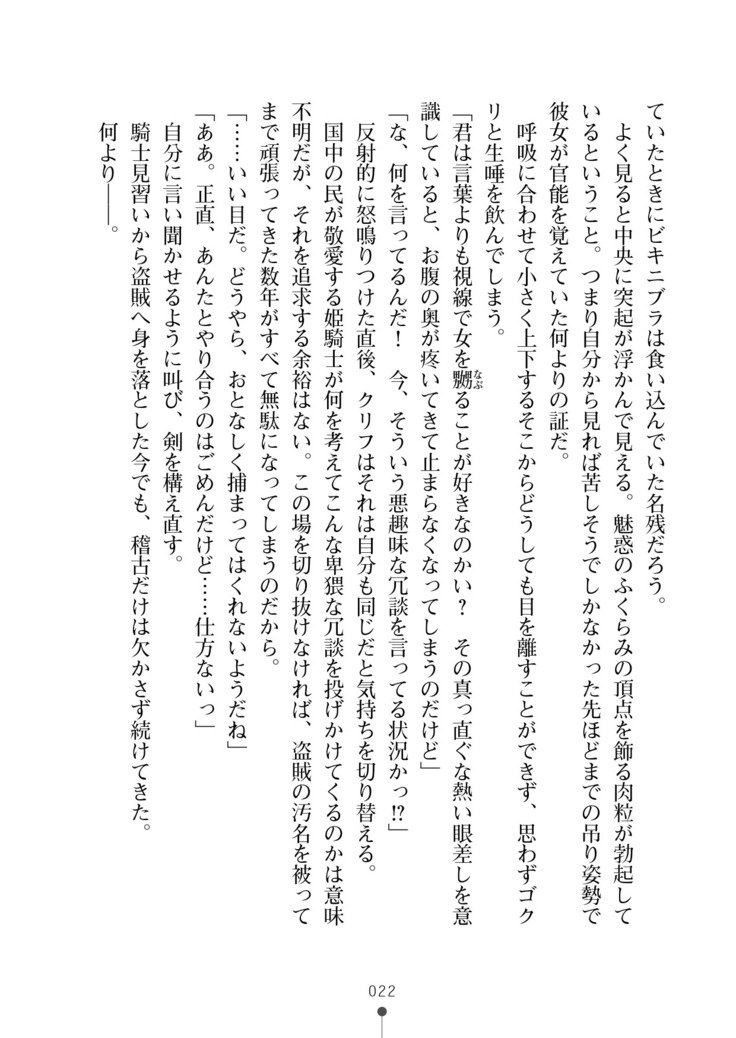 ていたときにビキニブラは食い込んでいた名残だろう。
　よく見ると中央に突起が浮かんで見える。魅惑のふくらみの頂点を飾る肉粒が勃起して
いるということ。つまり自分から見れば苦しそうでしかなかった先ほどまでの吊り姿勢で
彼女が官能を覚えていた何よりの証だ。
　呼吸に合わせて小さく上下するそこからどうしても目を離すことができず、思わずゴク
リと生唾を飲んでしまう。
「君は言葉よりも視線で女を嬲なぶることが好きなのかい？　その真っ直ぐな熱い眼差しを意
識していると、お腹の奥が疼いてきて止まらなくなってしまうのだけど」
「な、何を言ってるんだ！　今、そういう悪趣味な冗談を言ってる状況かっ!?」
　反射的に怒鳴りつけた直後、クリフはそれは自分も同じだと気持ちを切り替える。
　国中の民が敬愛する姫騎士が何を考えてこんな卑猥な冗談を投げかけてくるのかは意味
不明だが、それを追求する余裕はない。この場を切り抜けなければ、盗賊の汚名を被って
まで頑張ってきた数年がすべて無駄になってしまうのだから。
「……いい目だ。どうやら、おとなしく捕まってはくれないようだね」
「ああ。正直、あんたとやり合うのはごめんだけど……仕方ないっ」
　自分に言い聞かせるように叫び、剣を構え直す。
　騎士見習いから盗賊へ身を落とした今でも、稽古だけは欠かさず続けてきた。
　何より――。
022